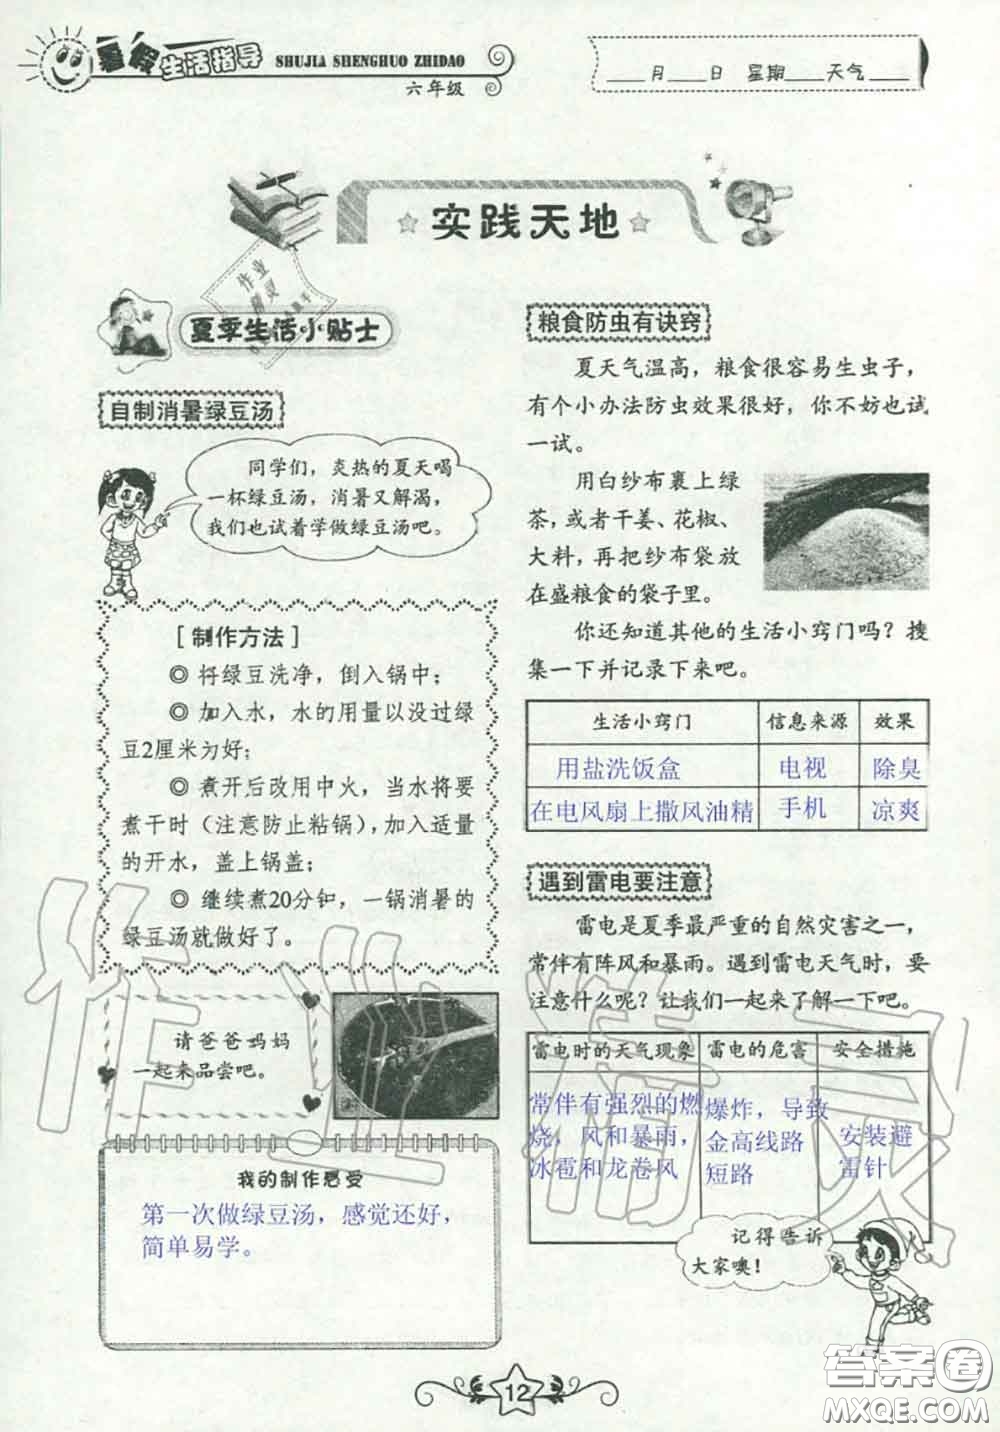 暑假生活指导
SHUJIA SHENGHUO ZHIDAO
六年级
____月____日 星期____天气____
实践天地
夏季生活小贴士
自制消暑绿豆汤
同学们，炎热的夏天喝
一杯绿豆汤，消暑又解渴，
我们也试着学做绿豆汤吧。
[制作方法]
◎ 将绿豆洗净，倒入锅中；
◎ 加入水，水的用量以没过绿
豆2厘米为好；
◎ 煮开后改用中火，当水将要
煮干时（注意防止粘锅），加入适量
的开水，盖上锅盖；
◎ 继续煮20分钟，一锅消暑的
绿豆汤就做好了。
请爸爸妈妈
一起来品尝吧。
我的制作感受
第一次做绿豆汤，感觉还好，
简单易学。
粮食防虫有诀窍
夏天气温高，粮食很容易生虫子，
有个小办法防虫效果很好，你不妨也试
一试。
用白纱布裹上绿
茶，或者干姜、花椒、
大料，再把纱布袋放
在盛粮食的袋子里。
你还知道其他的生活小窍门吗？搜
集一下并记录下来吧。
生活小窍门 信息来源 效果
用盐洗饭盒 电视 除臭
在电风扇上撒风油精 手机 凉爽
遇到雷电要注意
雷电是夏季最严重的自然灾害之一，
常伴有阵风和暴雨。遇到雷电天气时，要
注意什么呢？让我们一起来了解一下吧。
雷电时的天气现象 雷电的危害 安全措施
常伴有强烈的燃
烧，风和暴雨，
冰雹和龙卷风
爆炸，导致
金高线路
短路
安装避
雷针
记得告诉
大家噢！
12
作业精灵
答案圈
MXQE.COM